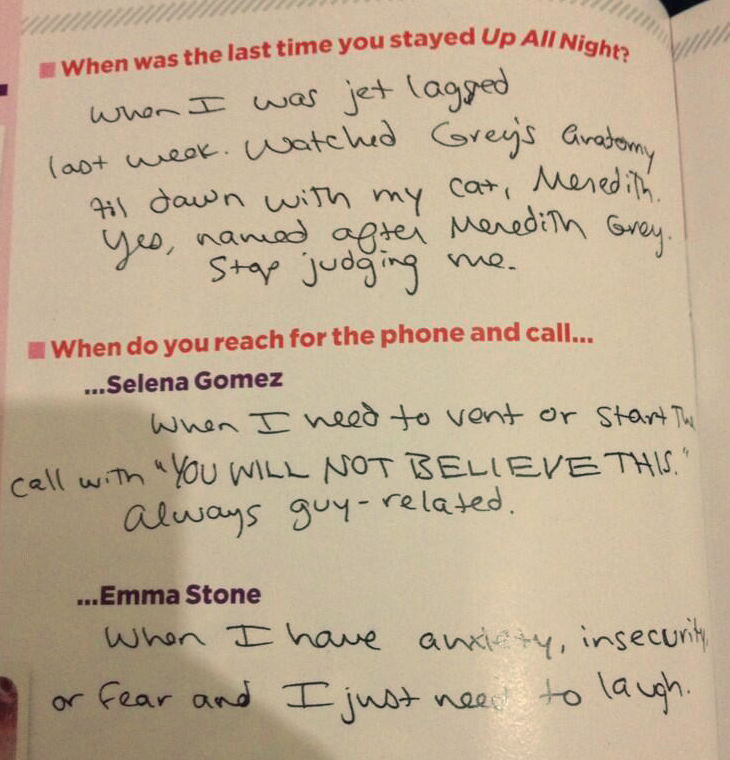 When was the last time you stayed Up All Night?
When I was jet lagged
last week. Watched Grey's Anatomy
til dawn with my cat, Meredith.
Yes, named after Meredith Grey.
Stop judging me.
When do you reach for the phone and call...
...Selena Gomez
When I need to vent or start the
call with "YOU WILL NOT BELIEVE THIS."
Always guy-related.
...Emma Stone
When I have anxiety, insecurity,
or fear and I just need to laugh.